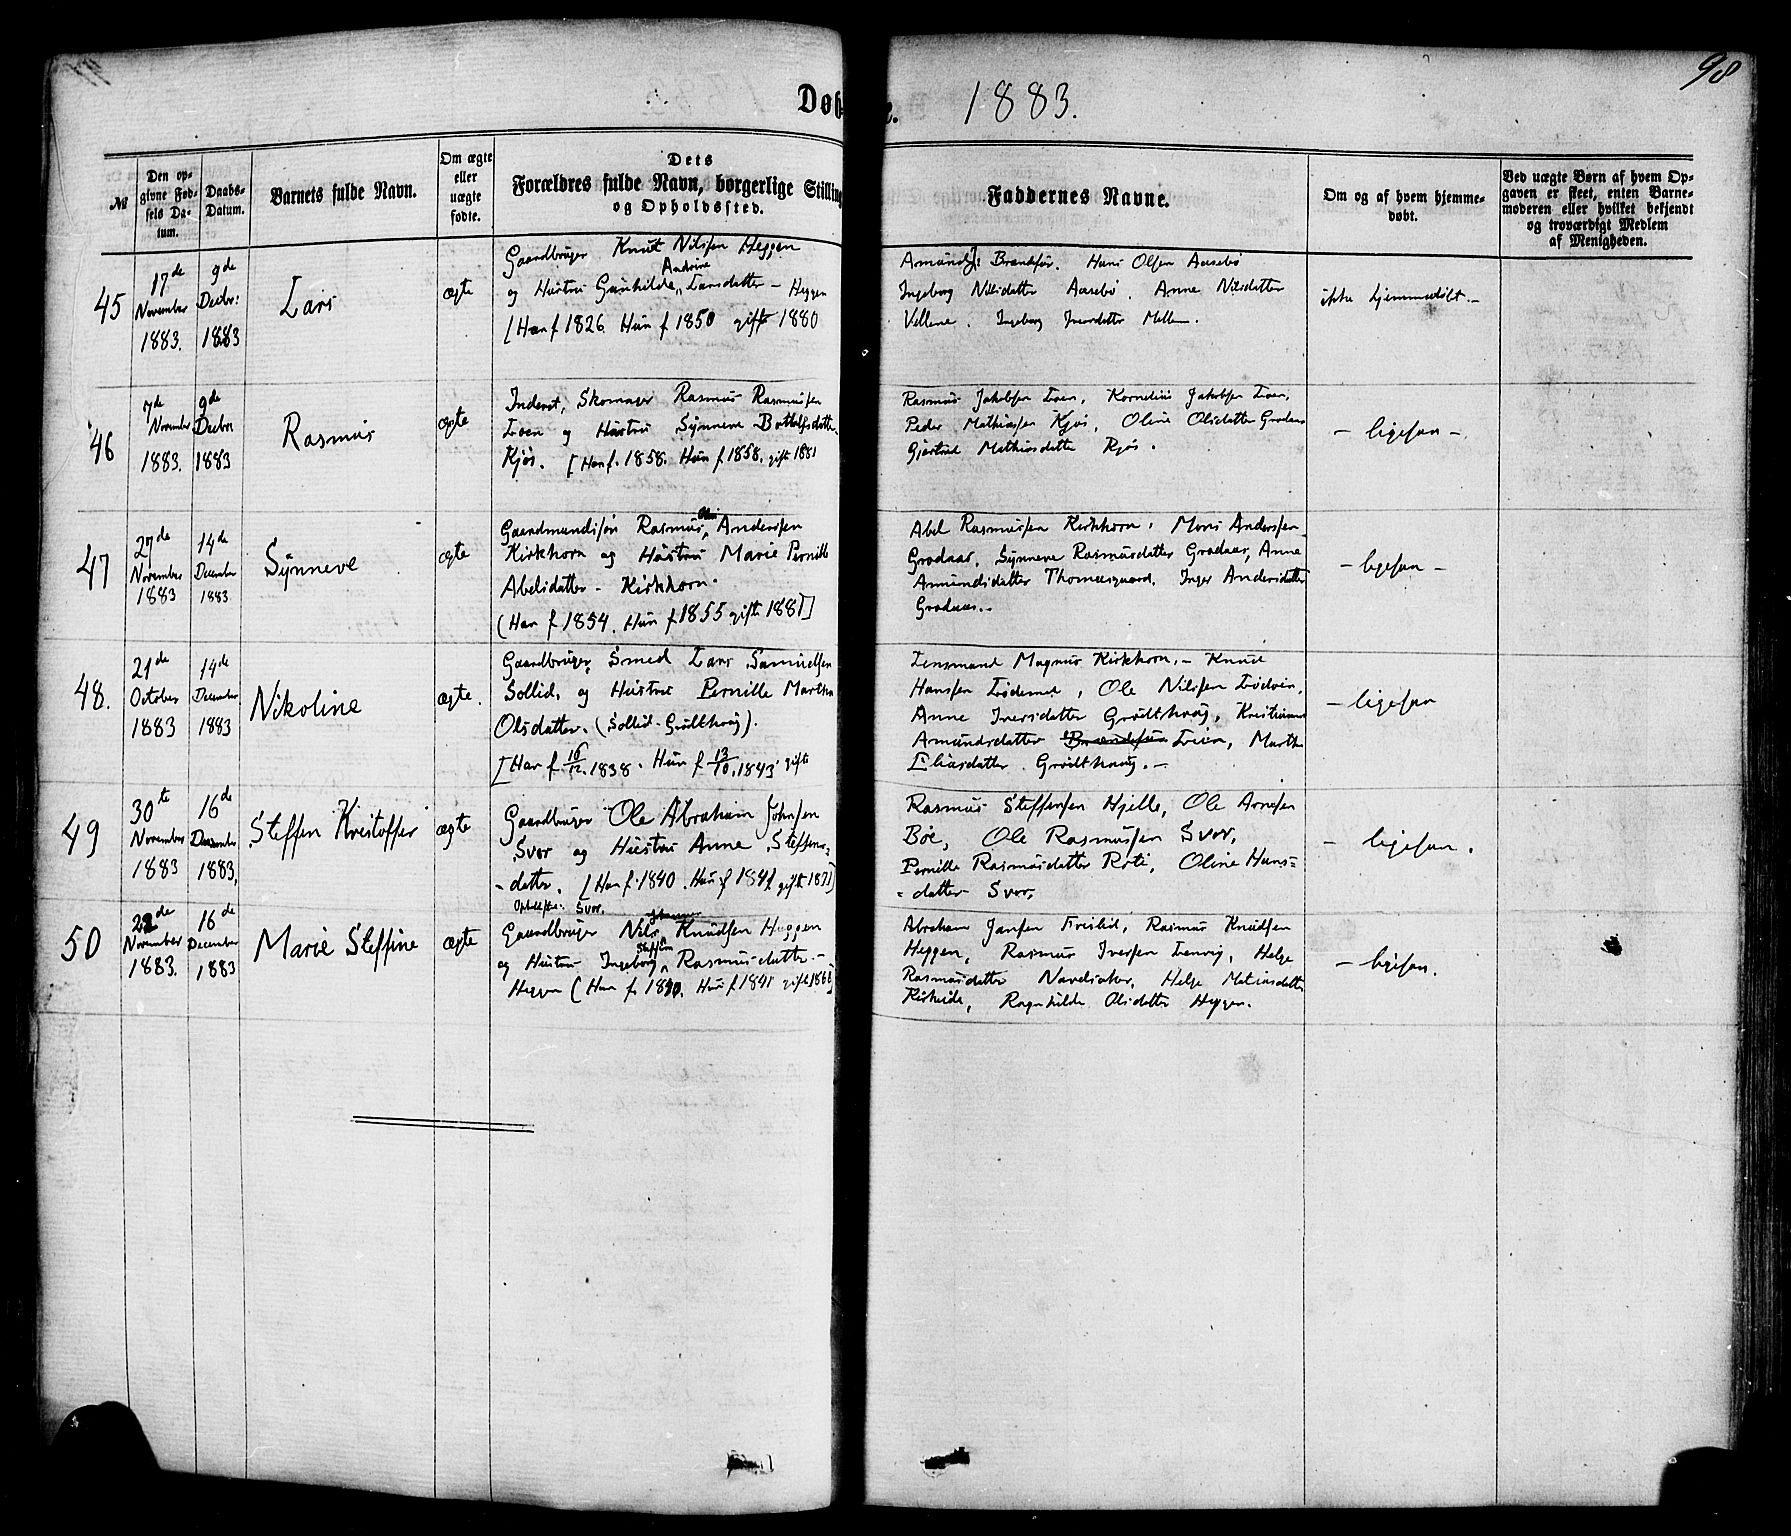 98
Døb
e. 1883.
№
Den op-
givne Fød-
sels Da-
tum.
Daabs-
Datum.
Barnets fulde Navn.
Om ægte
eller
uægte
fødte.
Dets
Forældres fulde Navn, borgerlige Stilling
og Opholdssted.
Faddernes Navne.
Om og af hvem hjemme-
døbt.
Ved uægte Børn af hvem Op-
gaven er skeet, enten Barne-
moderen eller hvilket bekjendt
og troværdigt Medlem
af Menigheden.
45
17de
November
1883.
9de
Decbr:
1883
Lars
ægte
Gaardbruger Knut Nilsen Heggen
Andrine
og Hustru Gunhilde Larsdatter - Heggen
[Han f 1826. Hun f 1850 gift 1880
Amund J: Brændsør. Hans Olsen Aasebø
Ingeborg Nilsdatter Aasebø. Anne Nilsdatter
Vellene. Ingeborg Iversdatter Mellem.
ikke hjemmedøbt.-
46
7de
November
1883.
9de
Decbr
1883
Rasmus
ægte
Inderst, Skomager Rasmus Rasmussen
Loen og Hustru Synneve Bottolfsdatter
Kjøs. [Han f. 1858. Hun f. 1858. gift 1881
Rasmus Jakobsen Loen, Kornelius Jakobsen Loen,
Peder Mathiassen Kjøs, Oline Olsdatter Grodaas
Gjertrud Mathiasdatter Kjøs.
- ligesaa -.
47
27de
November
1883
14de
December
1883
Synneve
ægte
Gaardmandssøn Rasmus Andersen
Kirkhorn og Hustru Marie Pernille
Abelsdatter - Kirkhorn.
(Han f 1854. Hun f 1855 gift 1881]
Abel Rasmussen Kirkhorn, Mons Andersen
Grodaas, Synneve Rasmusdatter Grodaas, Anne
Amundsdatter Thomasgaard, Inger Andersdatter
Grodaas.-
- ligesaa -
48.
21de
October
1883
14de
December
1883
Nikoline
ægte.
Gaardbruger Smed Lars Samuelsen
Sollid, og Hustru Pernille Marthe
Olsdatter. (Sollid-Grodthaug).
[Han f 16/12. 1838. Hun f 13/10. 1843. gift
Lensmand Magnus Kirkhorn.- Knud
Hanssen Lødemel, Ole Nilssen Lødøen,
Anne Iversdatter Grodthaug, Kristianne
Amundsdatter Loen, Marthe
Eliasdatter Grodthaug.-
- ligesaa
49
30te
November
1883
16de
December
1883,
Steffen Kristoffer
ægte
Gaardbruger Ole Abraham Johnsen
Svor og Hustru Anne Steffens-
- datter. [Han f. 1840. Hun f 1841 gift 1871]
Opholdsted: Svor.
Rasmus Steffensen Hjelle, Ole Arnesen
Bøe, Ole Rasmussen Svor,
Pernille Rasmusdatter Roti, Oline Hans=
= datter Svor,
- ligesaa.
50
22de
November
1883.
16de
December
1883
Marie Steffine
ægte
Gaardbruger Nils Knudsen Heggen
Steffine
og Hustru Ingeborg Rasmusdatter.-
Heggen (Han f. 1840. Hun f 1841 gift 1868]
Abraham Jansen Freslid, Rasmus Knudsen
Heggen, Rasmus Iversen Lenvig, Helge
Rasmusdatter Navelsaker, Helge Matiasdatter
Kirkeide, Ragnhilde Olsdatter Heggen.
- ligesaa.